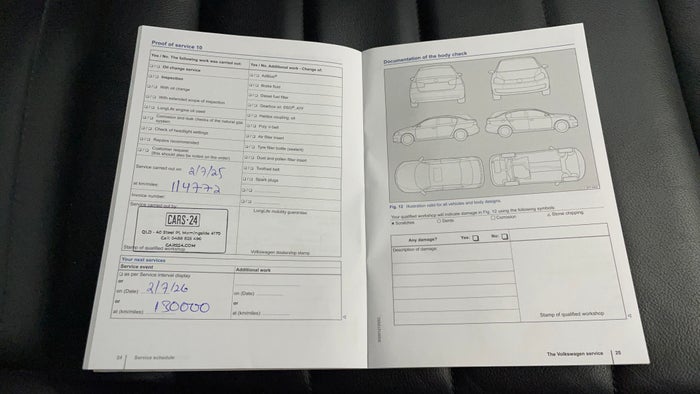 Proof of service 10
Yes / No: The following work was carried out:
❏ / ❏ Oil change service
❏ / ❏ Inspection
❏ / ❏ With oil change
❏ / ❏ With extended scope of inspection
❏ / ❏ LongLife engine oil used
❏ / ❏ Corrosion and leak checks of the natural gas
system
❏ / ❏ Check of headlight settings
❏ / ❏ Repairs recommended
❏ / ❏ Customer request
(this should also be noted on the order)
Service carried out on 2/7/25
at km/miles: 114772
Invoice number:
Service carried out by
CARS·24
QLD - 40 Steel Pl, Morningside 4170
Call 0488 825 490
CARS24.COM
Stamp of qualified workshop
Yes / No: Additional work - Change of:
❏ / ❏ AdBlue®
❏ / ❏ Brake fluid
❏ / ❏ Diesel fuel filter
❏ / ❏ Gearbox oil: DSG®, ATF
❏ / ❏ Haldex coupling: oil
❏ / ❏ Poly V-belt
❏ / ❏ Air filter insert
❏ / ❏ Tyre filler bottle (sealant)
❏ / ❏ Dust and pollen filter insert
❏ / ❏ Toothed belt
❏ / ❏ Spark plugs
❏ / ❏
❏ / ❏
LongLife mobility guarantee
Volkswagen dealership stamp
Your next services
Service event
❏ as per Service interval display
or
on (Date) 2/7/26
or
at (km/miles) 130000
Additional work
on (Date)
or
at (km/miles)
24 Service schedule
Documentation of the body check
Fig. 12 Illustration valid for all vehicles and body designs.
Your qualified workshop will indicate damage in Fig. 12 using the following symbols
× Scratches
○ Dents
□ Corrosion
△ Stone chipping.
Any damage?
Yes: ❏
No: ❏
Description of damage:
Stamp of qualified workshop
The Volkswagen service 25